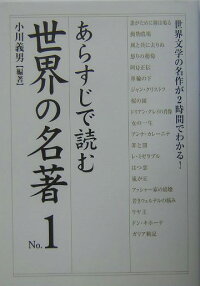 世界文学の名作が2時間でわかる！
誰がために鐘は鳴る
動物農場
風と共に去りぬ
怒りの葡萄
阿Q正伝
車輪の下
ジャン・クリストフ
桜の園
ドリアン・グレイの肖像
女の一生
アンナ・カレーニナ
罪と罰
レ・ミゼラブル
はつ恋
嵐が丘
アッシャー家の崩壊
若きウェルテルの悩み
リヤ王
ドン・キホーテ
ガリア戦記
あらすじで読む
世界の名著
No.1
小川義男【編著】